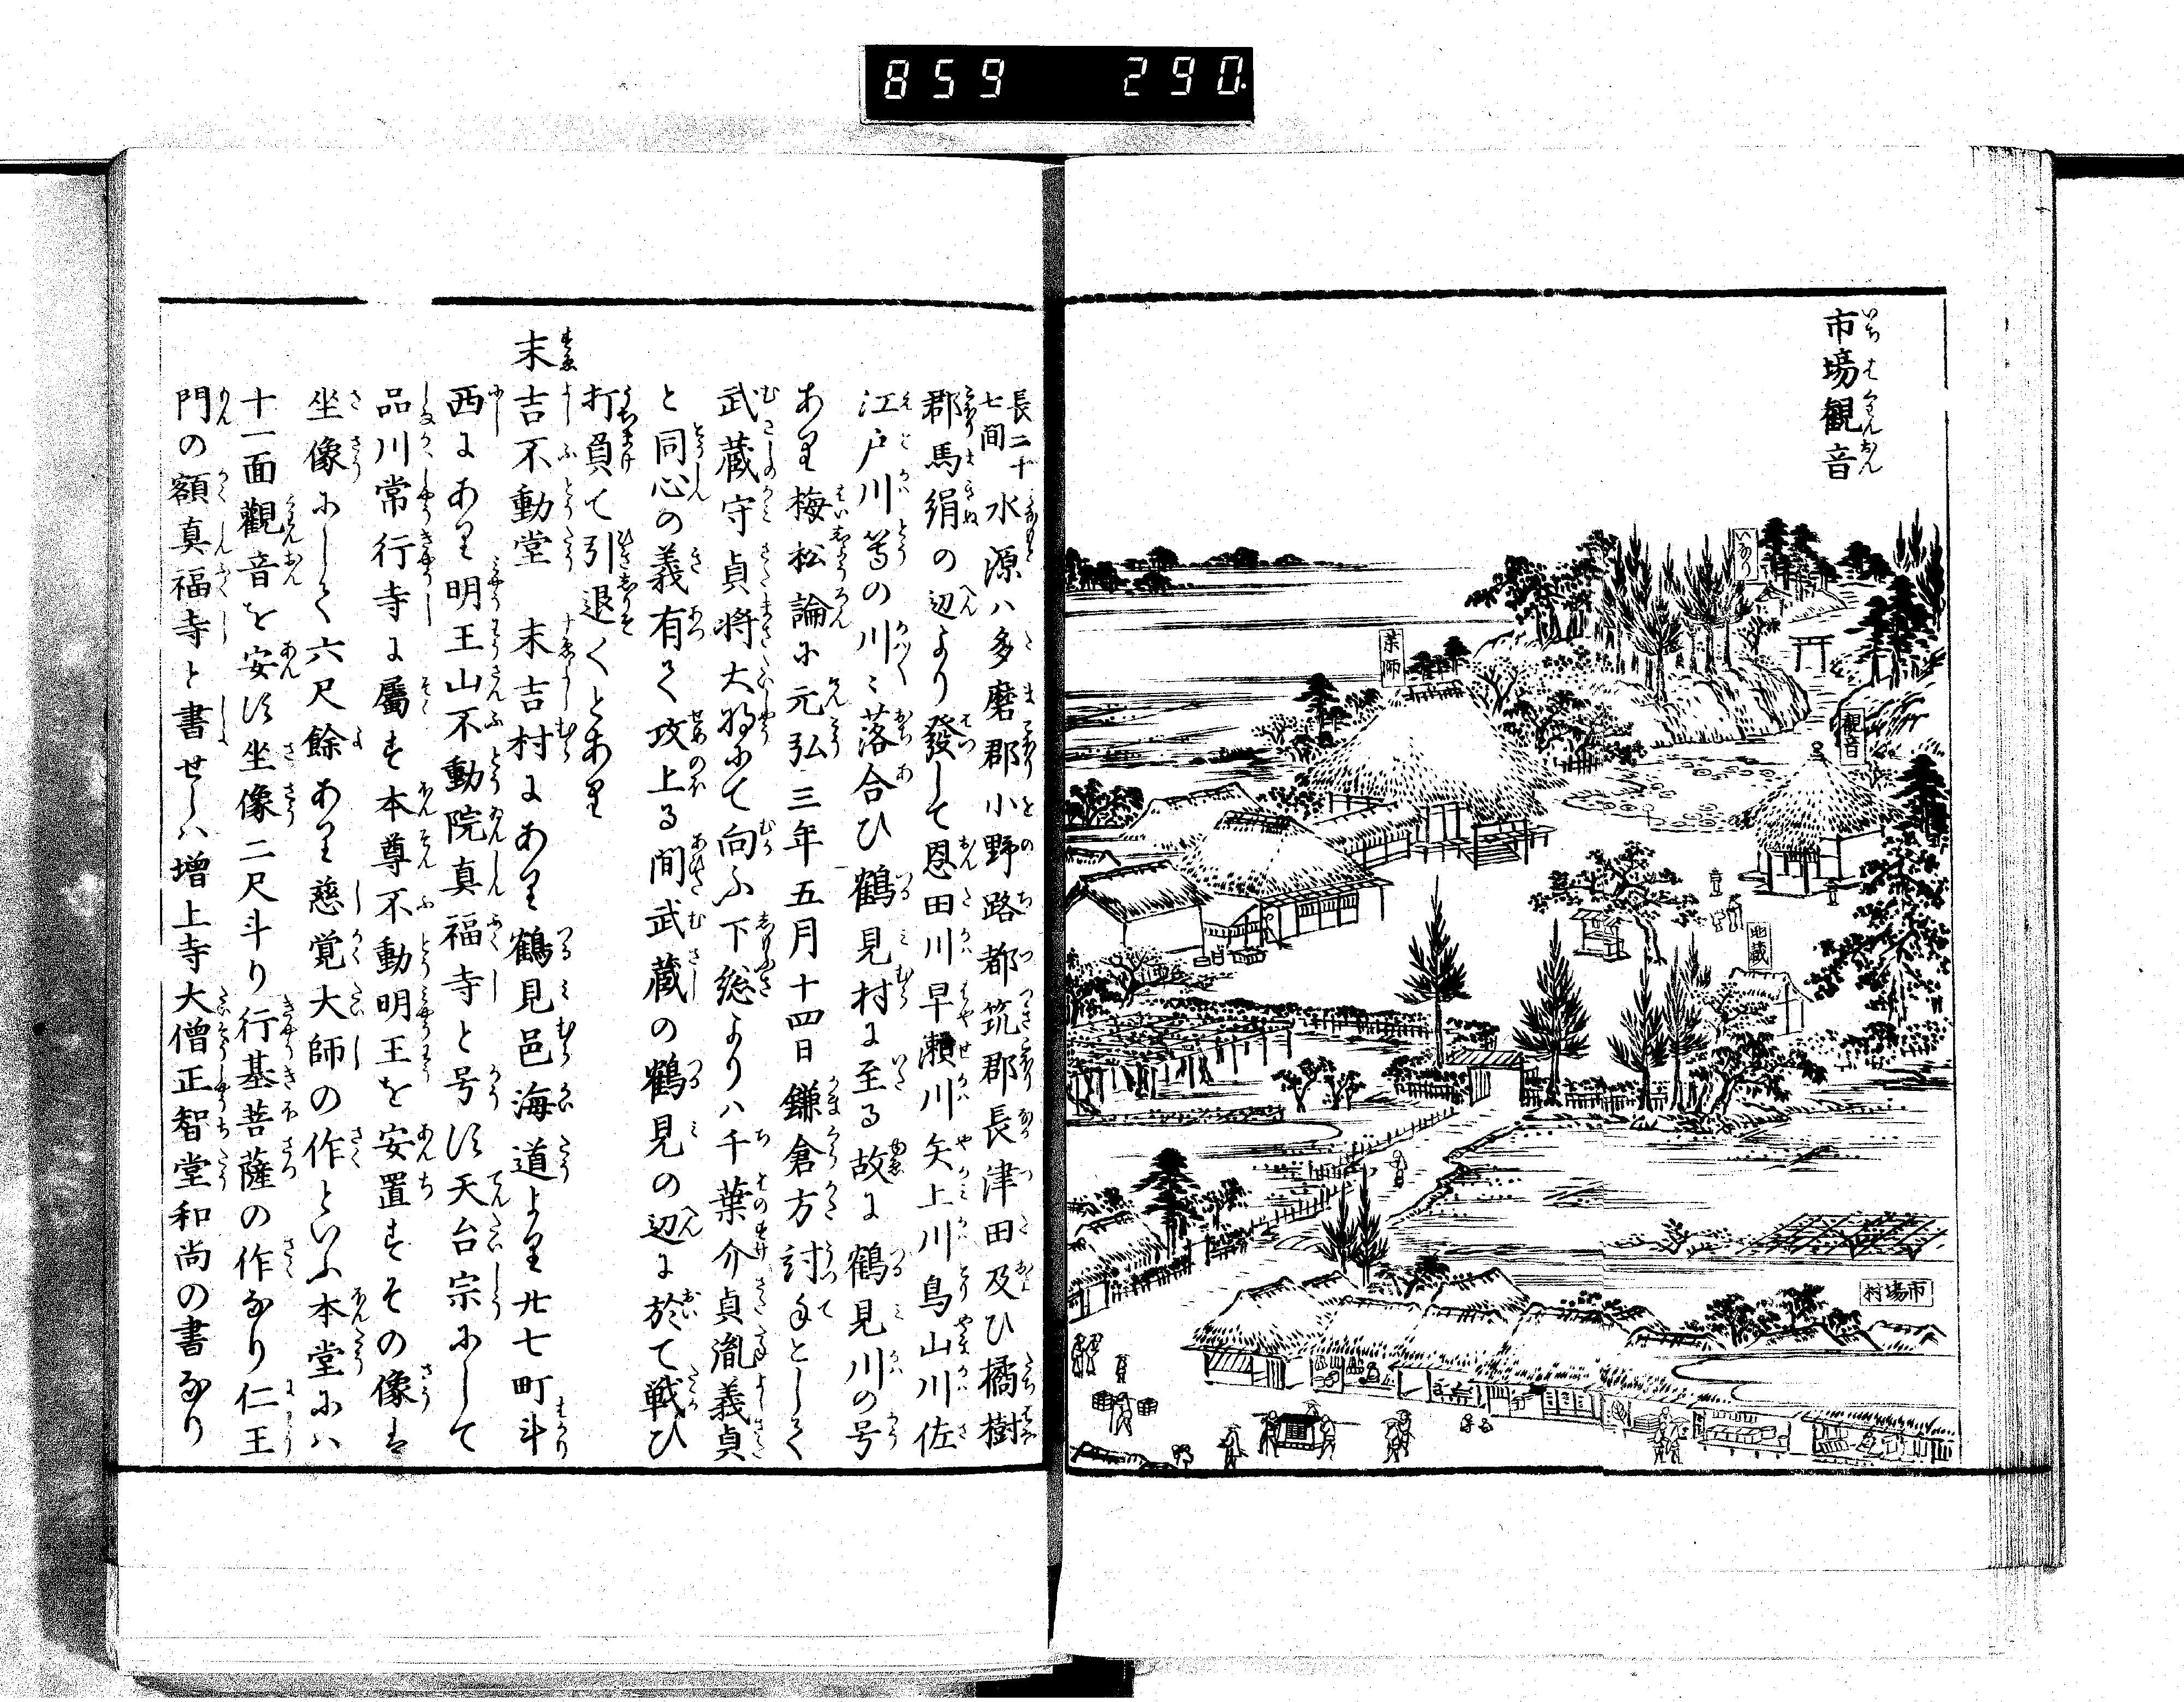 859 290
市場観音
いなり
薬師
観音
地蔵
市場村
長二十
七間
水源ハ多磨郡小野路都筑郡長津田及ひ橘樹
郡馬絹の辺より發して恩田川早瀬川矢上川鳥山川佐
江戸川等の川〻落合ひ鶴見村に至る故に鶴見川の号
あり梅松論に元弘三年五月十四日鎌倉方討手として
武蔵守貞将大将にて向ふ下総よりハ千葉介貞胤義貞
と同心の義有て攻上る間武蔵の鶴見の辺に於て戦ひ
打負て引退くとあり
末吉不動堂 末吉村にあり鶴見邑海道より廿七町斗
西にあり明王山不動院真福寺と号す天台宗にして
品川常行寺に屬す本尊不動明王を安置すその像は
坐像にして六尺餘あり慈覚大師の作といふ本堂にハ
十一面觀音を安す坐像二尺斗り行基菩薩の作なり仁王
門の額真福寺と書せしハ増上寺大僧正智堂和尚の書なり